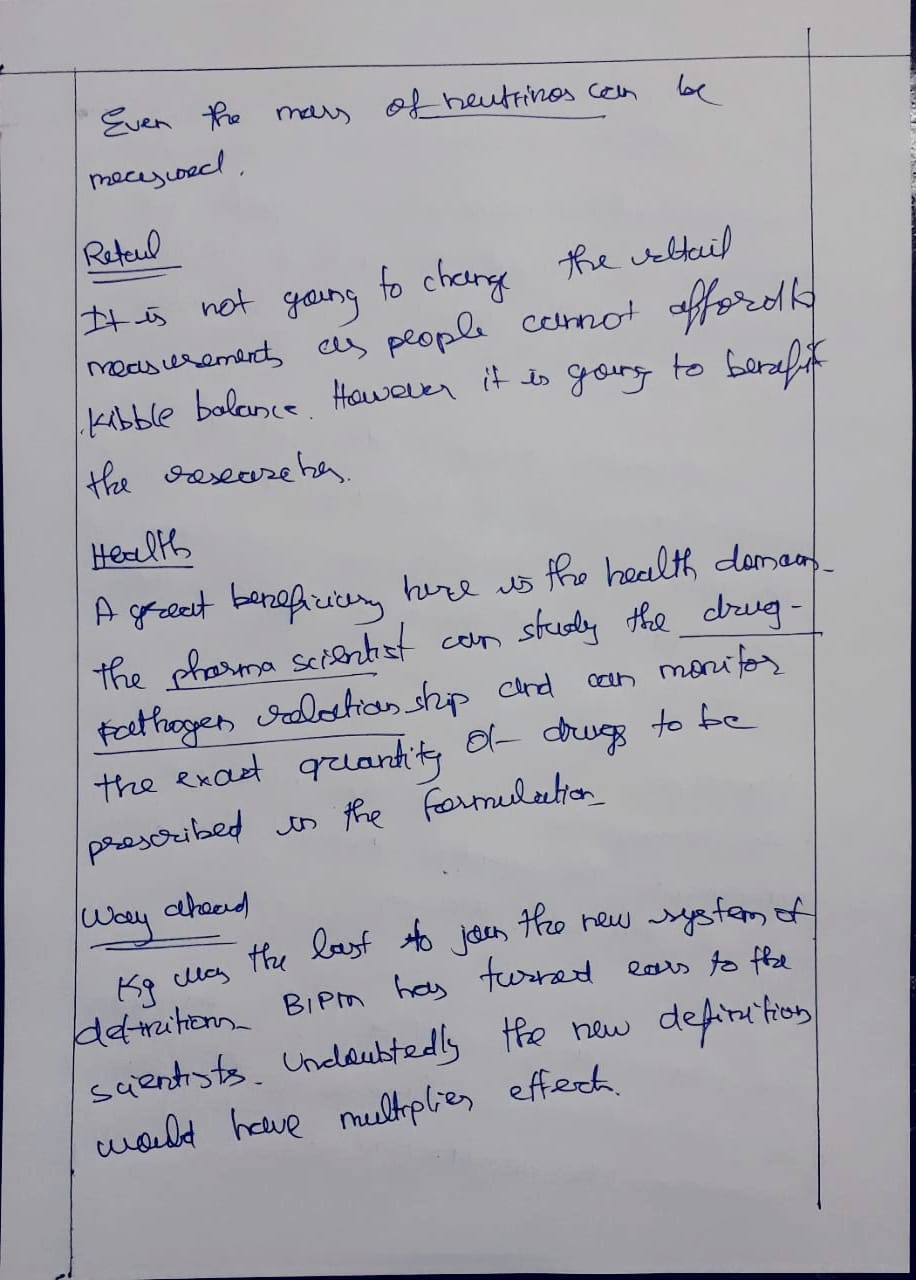 Even the mass of neutrinos can be
measured.
Retail
It is not going to change the retail
measurements as people cannot afford
Kibble balance. However it is going to benefit
the researcher.
Health
A great beneficiary here is the health domain.
the pharma scientist can study the drug-
pathogen relationship and can monitor
the exact quantity of drugs to be
prescribed in the formulation
Way ahead
Kg was the last to join the new system of
definition BIPM has turned ears to the
scientists. Undoubtedly the new definition
would have multiplier effect.